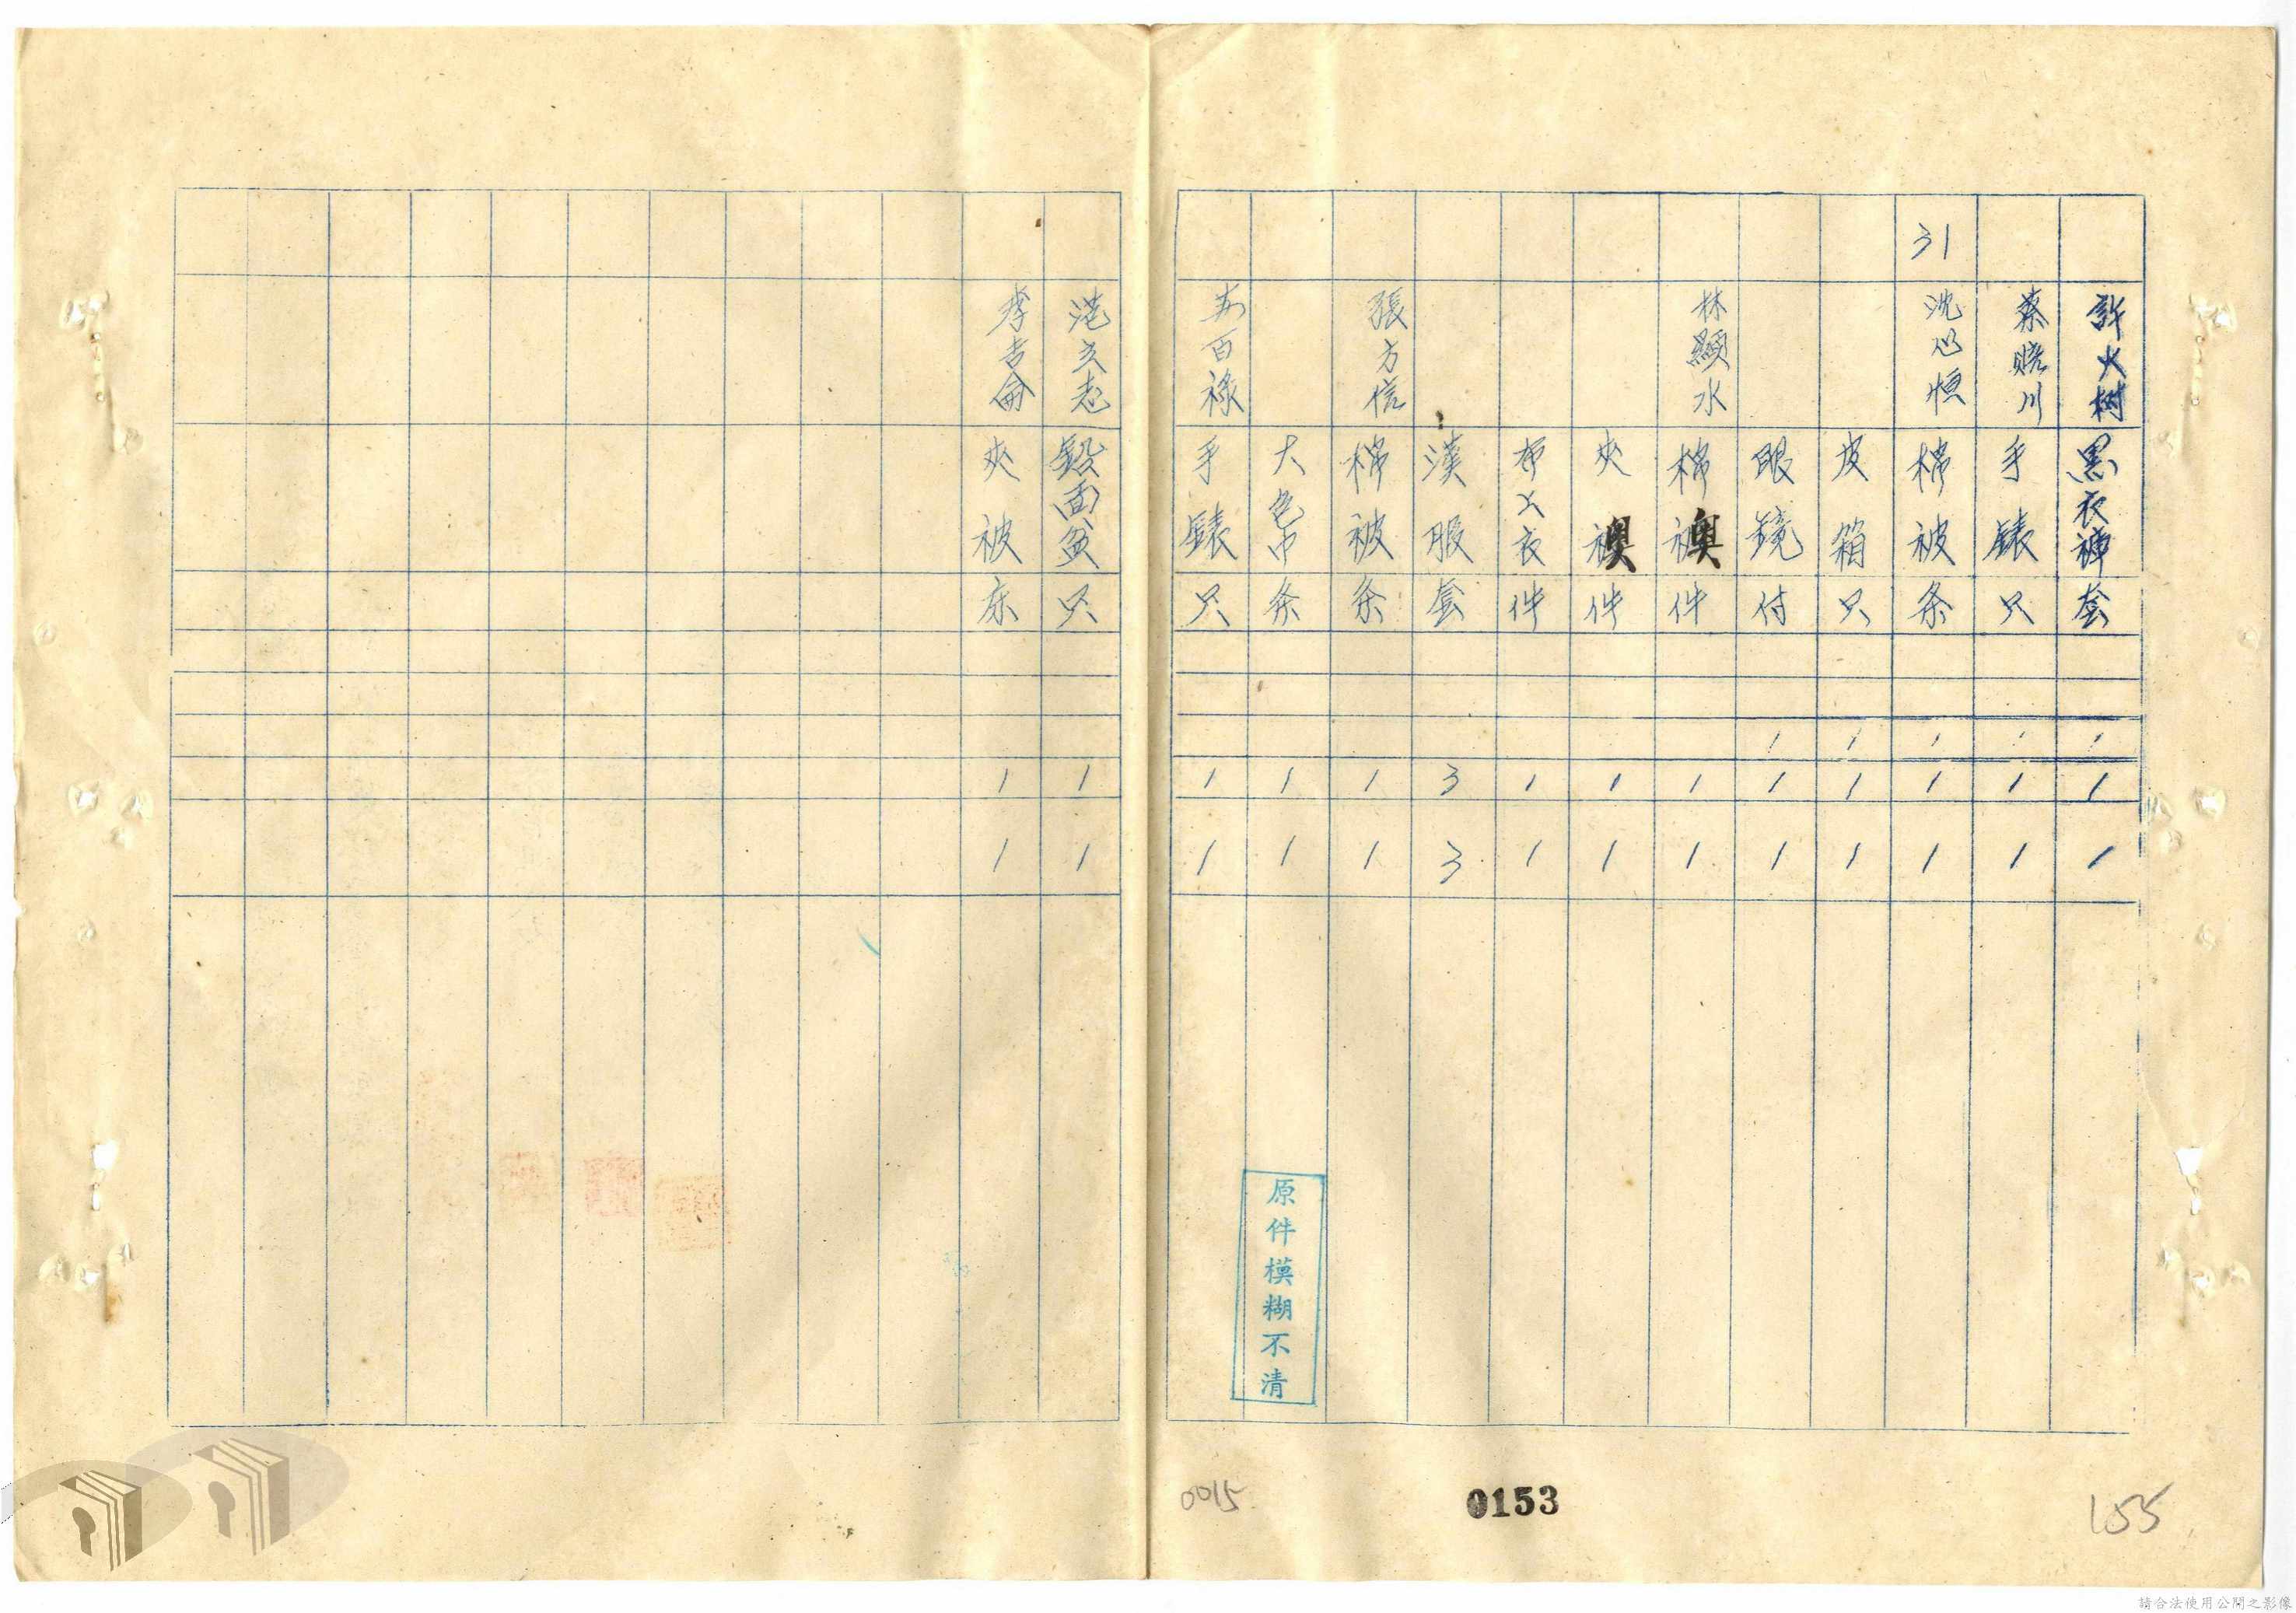 許火樹 黑衣褲 套 1 1 1
蔡曉川 手錶 只 1 1 1
31 沈心恒 棉被 条 1 1 1
皮箱 只 1 1 1
眼鏡 付 1 1 1
林顯水 棉襖 件 1 1
夾襖 件 1 1
布大衣 件 1 1
漢服 套 3 3
張方信 棉被 条 1 1
大色巾 条 1 1
百祿 手錶 只 1 1
面盆 只 1 1
李吉侖 夾被 床 1 1
原件模糊不清
0015
0153
155
請合法使用公開之影像